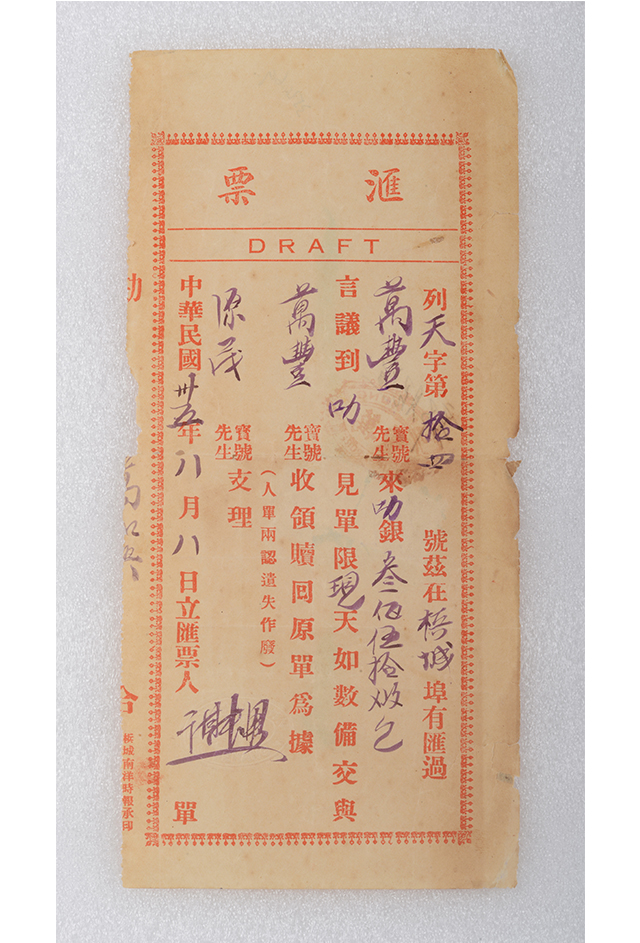 滙票
DRAFT
列天字第拾四號茲在梹城埠有匯過
萬豐寶號先生來叻銀叁佰伍拾
言議到叻見單限現天如數備交與
萬豐寶號先生收領贖回原單為據
（人單兩認遺失作廢）
源茂寶號先生支理
中華民國卅五年八月八日立匯票人單
檳城南洋時報承印